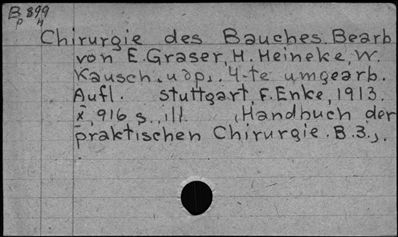 B 899
P H
Chirurgie des Bauches. Bearb.
von E. Graser, H. Heineke, W.
Kausch. u dp,. 4-te umgearb.
Aufl. Stuttgart, F. Enke, 1913.
X, 916 S., ill. (Handbuch der
praktischen Chirurgie. B. 3.).